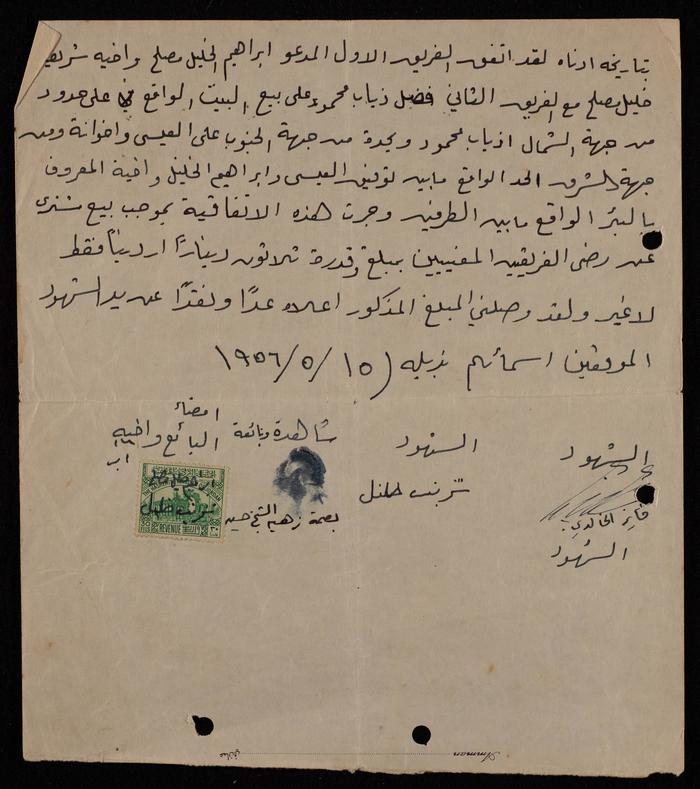 بتاريخه ادناه لقد اتفق الفريق الاول المدعو ابراهيم الخليل مصلح واخيه شريف
خليل مصلح مع الفريق الثاني فضل ذياب محمود على بيع البيت الواقع على حدود
من جهة الشمال اذياب محمود ويحدة من جهة الجنوب على العيسى واخوانة ومن
جهة الشرق الحد الواقع مابين توفيق العيسى وابراهيم الخليل واخية المعروف
بالبئر الواقع مابين الطرفين وجرت هذه الاتفاقية بموجب بيع مشترى
عن رضى الفريقيين المعنيين بمبلغ وقدرة ثلاثون ديناراً اردنياً فقط
لاغير ولقد وصلني المبلغ المذكور اعلاه عداً ونقداً عن يد الشهود
الموقعين اسمائهم بذيله (١٥/٥/١٩٥٦
الشهود
فايز الخالدي
الشهود
الشهود
شريف خليل
شاهدة وبائعة
بصمة زهية الشيخ حسين
امضاء
البائع واخيه
شريف خليل
REVENUE
Amman
عمان